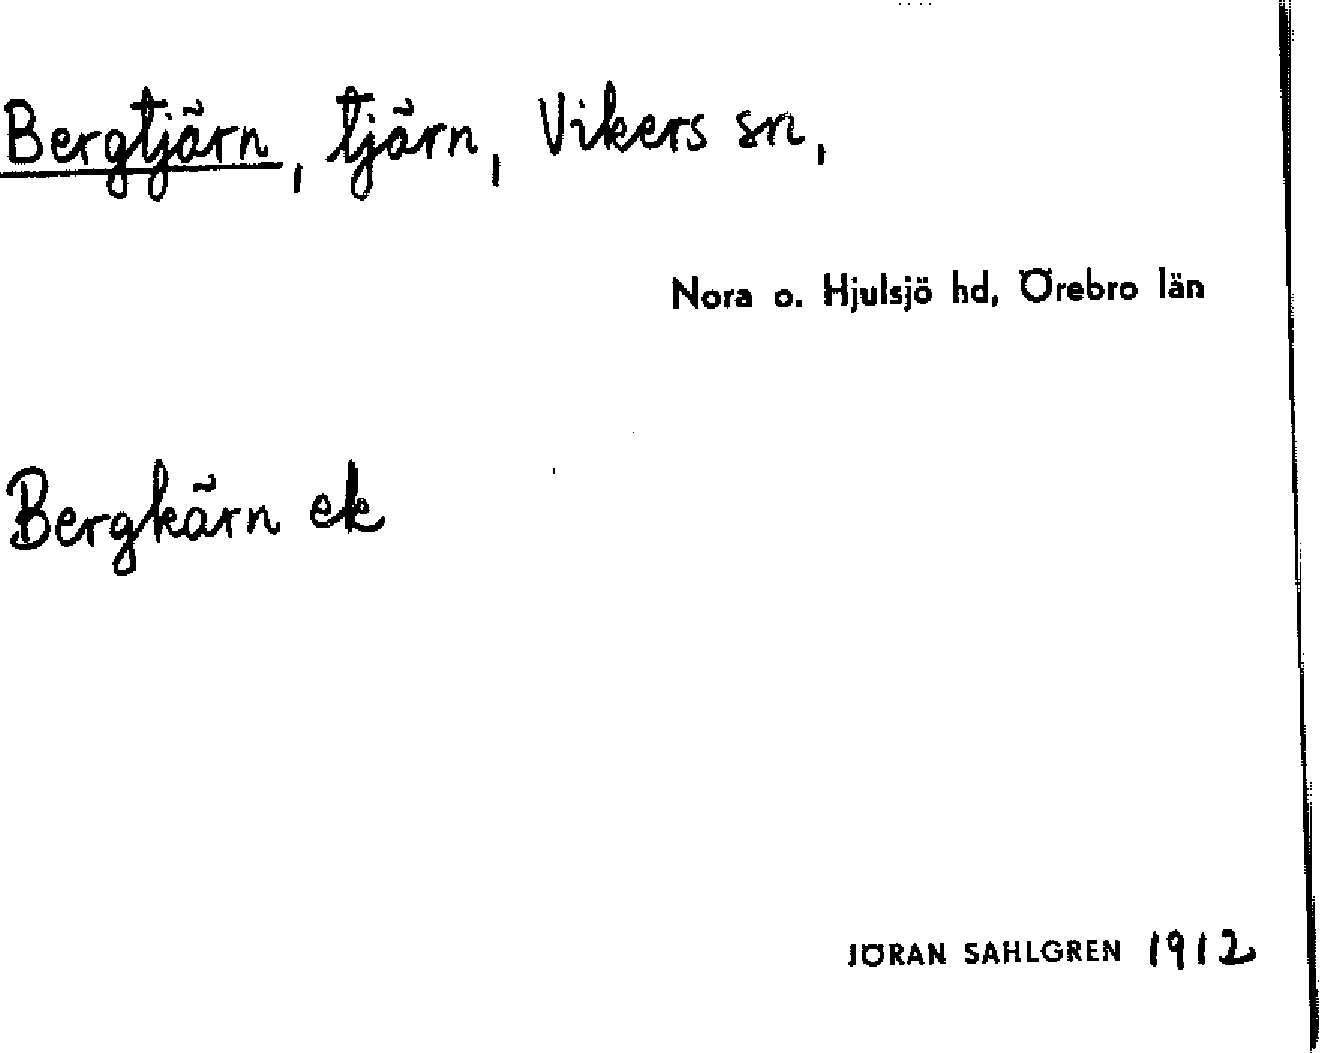 Bergtjärn, tjärn, Vikers sn,
Nora o. Hjulsjö hd, Örebro län
Bergkärn ek
JÖRAN SAHLGREN 1912